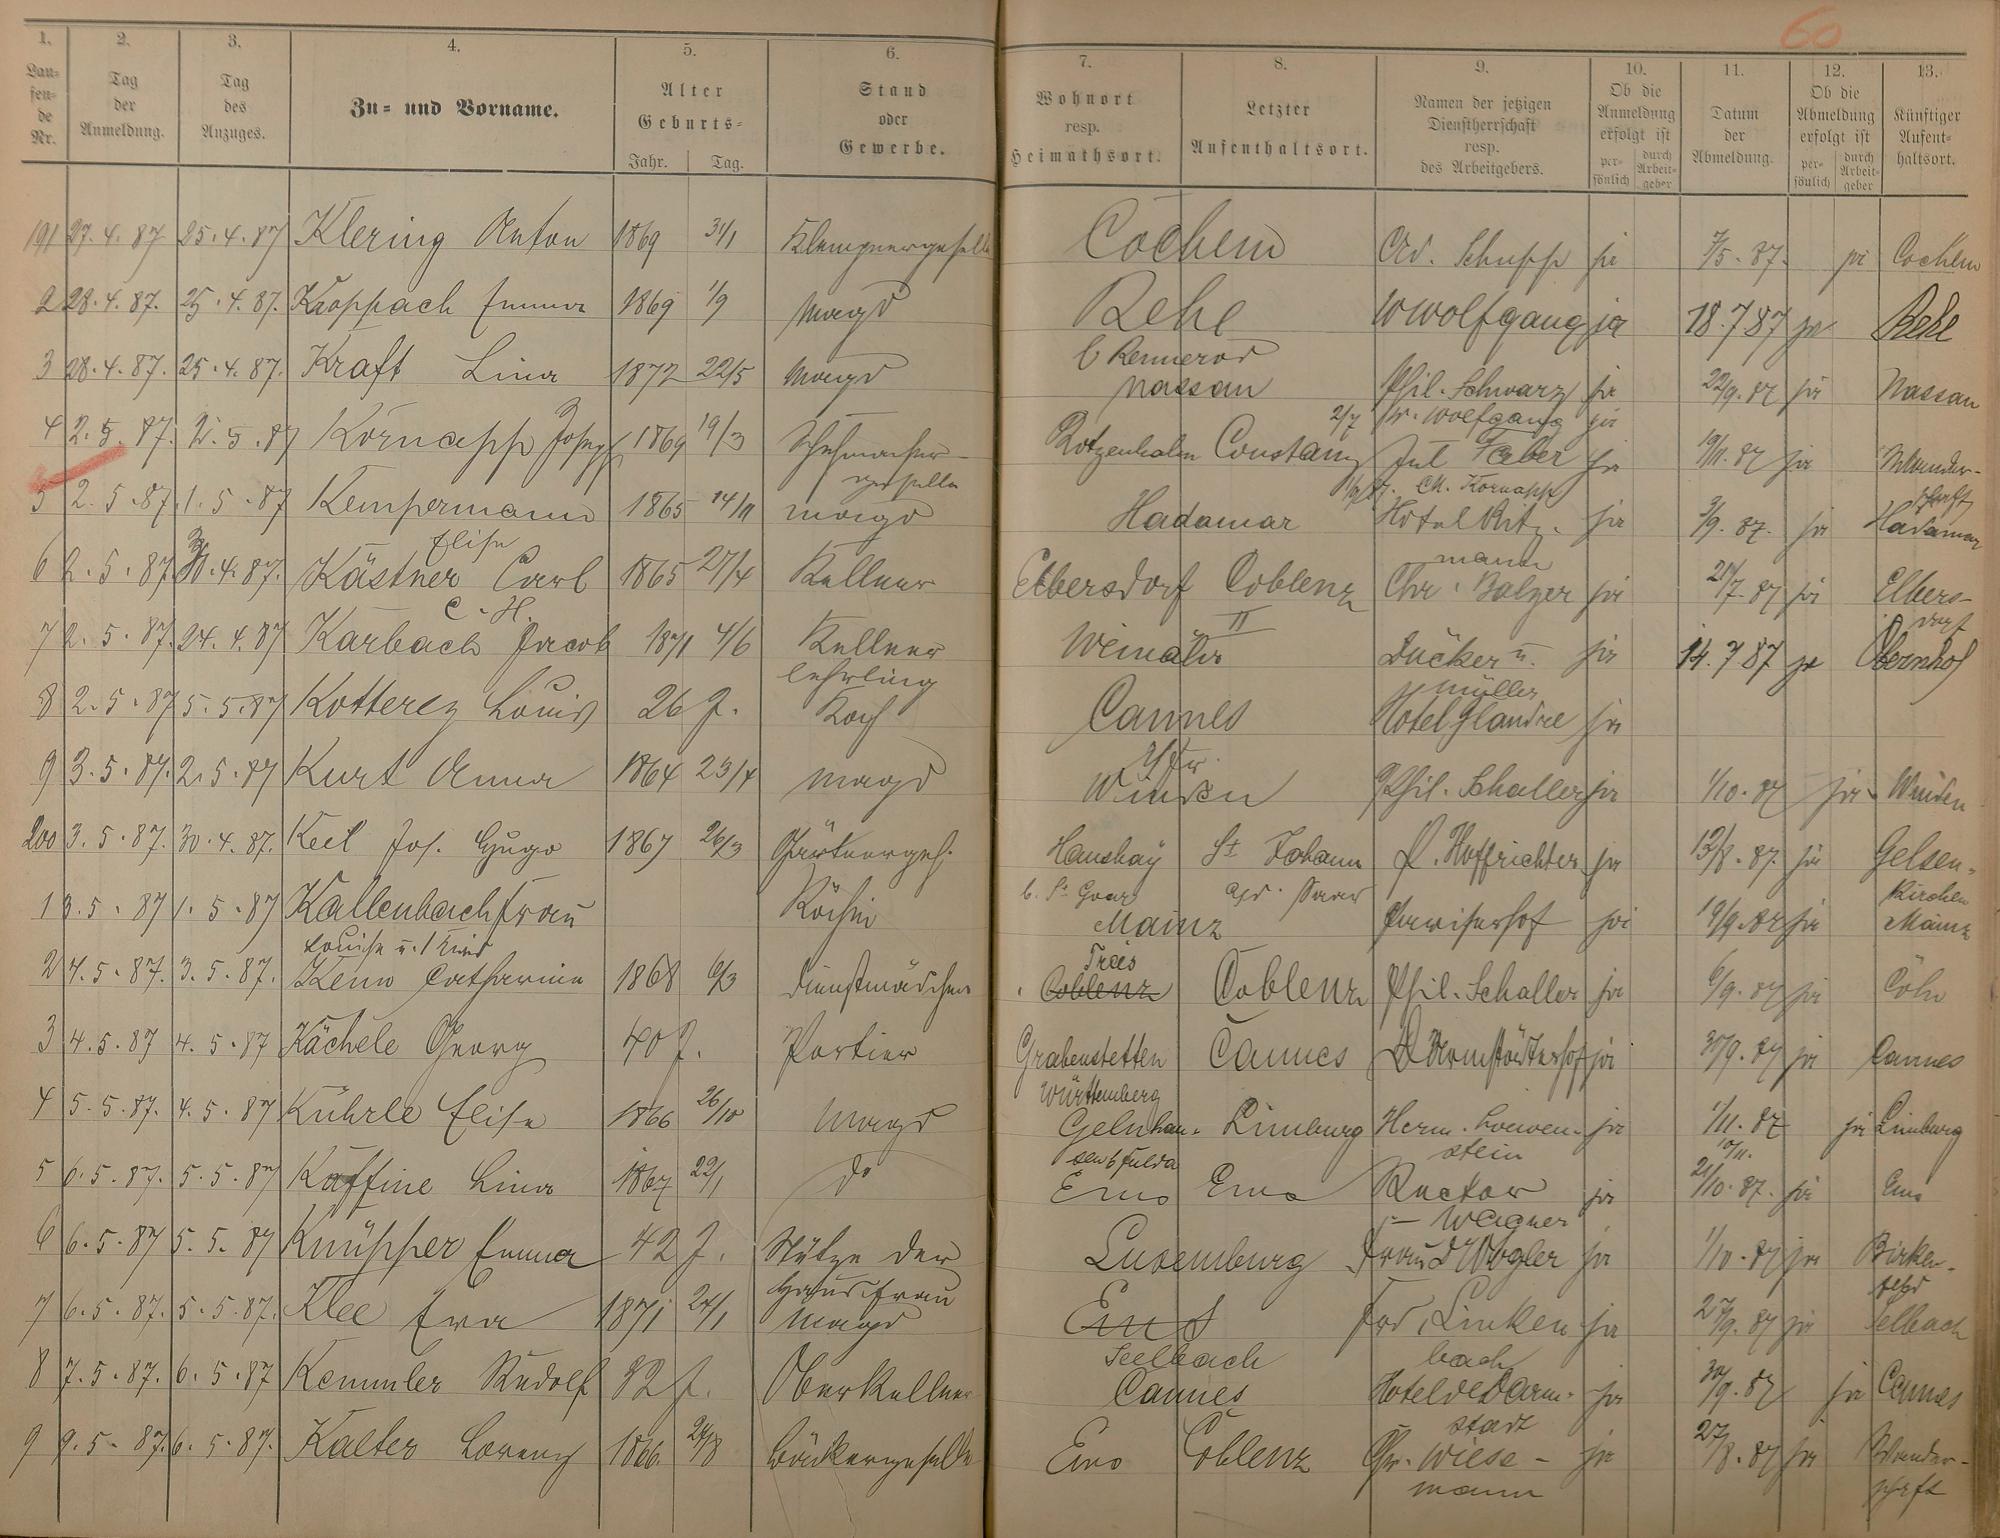 60
1. 2. 3. 4. 5. 6. 7. 8. 9. 10. 11. 12. 13.
Laufende Nr. Tag der Anmeldung. Tag des Anzuges. Zu- und Vorname. Alter Geburts- Jahr. Tag. Stand oder Gewerbe. Wohnort resp. Heimathsort. Letzter Aufenthaltsort. Namen der jetzigen Dienstherrschaft resp. des Arbeitgebers. Ob die Anmeldung erfolgt ist persönlich durch Arbeitgeber Datum der Abmeldung. Ob die Abmeldung erfolgt ist persönlich durch Arbeitgeber Künftiger Aufenthaltsort.
191 27.4.87 25.4.87 Klering Anton 1869 31/1 Klempnergeselle Cochem Ad. Schupp ja 7/5.87. ja Cochem
2 28.4.87. 25.4.87. Kroppach Emma 1869 1/9 Magd Rehe W Wolfgang ja 18.7 87 ja Rehe
b Rennerod
3 28.4.87. 25.4.87. Kraft Lina 1872 22/5 Magd Nassau Phil. Schwarz ja 22/9.87 ja Nassau
2/7 W. Wolfgang ja
4 2.5.87. 2.5.87 Kornapp Joseph 1869 19/3 Schuhmacher- Constanz Jul Faber ja 19/11.87 ja Wander-
geselle Ch. Kornapp schaft
5 2.5.87. 1.5.87 Kempermann 1865 14/11 Magd Hadamar Hotel Ritz- ja 3/9.87. ja Hadamar
Elise mann
6 2.5.87 30.4.87. Kästner Carl 1865 27/4 Kellner Elbersdorf Coblenz Chr. Balzer ja 21/7.87 ja Elbers-
C. H. II dorf
7 2.5.87. 24.4.87 Karbach Jacob 1871 4/6 Kellner Weinähr Dücker u. ja 14.7 87 ja Obernhof
lehrling Müller
8 2.5.87 5.5.87 Kotterez Louis 26 J. Koch Cannes Hotel Glandre ja
9 3.5.87. 2.5.87 Kurt Anna 1864 23/4 Magd Winden Phil. Schaller ja 1/10.87 ja Winden
200 3.5.87. 30.4.87. Keil Jos. Hugo 1867 26/3 Gärtnergeh. Hausbay St Johann P. Hoffrichter ja 13/8.87. ja Gelsen-
b. St. Goar a/d. Saar kirchen
1 3.5.87 1.5.87 Kallenbach Frau Köchin Mainz ja 19/9.87 ja Mainz
Louise u. 1 Kind Treis
2 4.5.87. 3.5.87. Kenn Catharina 1868 6/3 Dienstmädchen Coblenz Coblenz Phil. Schaller ja 6/9.87 ja Cöln
3 4.5.87 4.5.87 Kächele Georg 40 J. Portier Grabenstetten Cannes Darmstädterhof ja 30/9.87 ja Cannes
Württemberg
4 5.5.87. 4.5.87 Kührle Elise 1866 26/10 Magd Gelnhau- Limburg Herm. Loewen- ja 1/11.87 ja Limburg
sen b Fulda stein 10/11.
5 6.5.87. 5.5.87 Kaffine Lina 1867 22/1 do Ems Ems Rector ja 21/10.87. ja Ems
Wagner
6 6.5.87 5.5.87 Knüpper Emma 42 J. Stütze der Luxemburg Frau D Vogler ja 1/10.87 ja Birken-
Hausfrau feld
7 6.5.87. 5.5.87. Klee Eva 1871 24/1 Magd Ems Frd. Linken ja 27/9.87 ja Selbach
Seelbach bach
8 7.5.87. 6.5.87 Kemmler Rudolf 32 J. Oberkellner Cannes Hotel de Darm- ja 30/9.87 ja Cannes
stadt
9 9.5.87. 6.5.87. Kalter Lorenz 1866. 24/8 Bäckergeselle Ems Coblenz Chr. Wiese- ja 27/8.87 ja Wander-
mann schaft